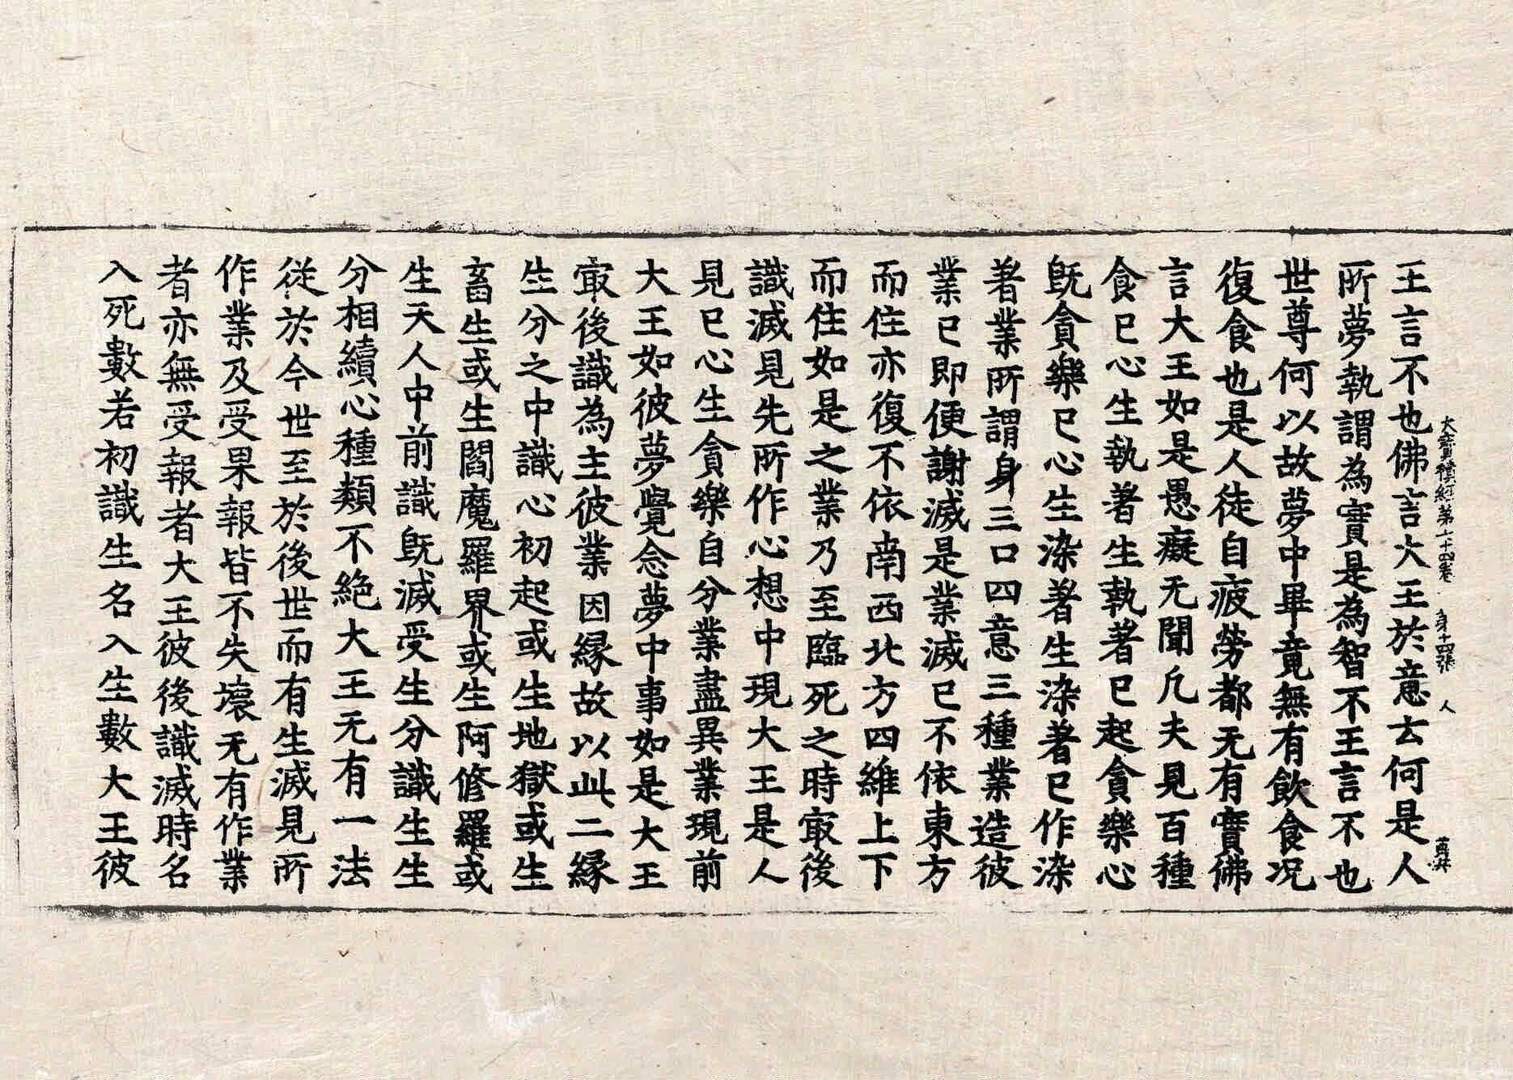 王言不也佛言大王於意去何是人
大寶積經第七十四卷 身十四張 人
所夢執謂為實是為智不王言不也
世尊何以故夢中畢竟無有飲食况
復食也是人徒自疲勞都无有實佛
言大王如是愚癡无聞凢夫見百種
食已心生執著生執著已起貪樂心
既貪樂已心生染著生染著已作染
著業所謂身三口四意三種業造彼
業已即便謝滅是業滅已不依東方
而住亦復不依南西北方四維上下
而住如是之業乃至臨死之時㝡後
識滅見先所作心想中現大王是人
見已心生貪樂自分業盡異業現前
大王如彼夢覺念夢中事如是大王
㝡後識為主彼業因縁故以此二縁
生分之中識心初起或生地獄或生
畜生或生閻魔羅界或生阿修羅或
生天人中前識既滅受生分識生生
分相續心種類不絶大王无有一法
從於今世至於後世而有生滅見所
作業及受果報皆不失壞无有作業
者亦無受報者大王彼後識滅時名
入死數若初識生名入生數大王彼